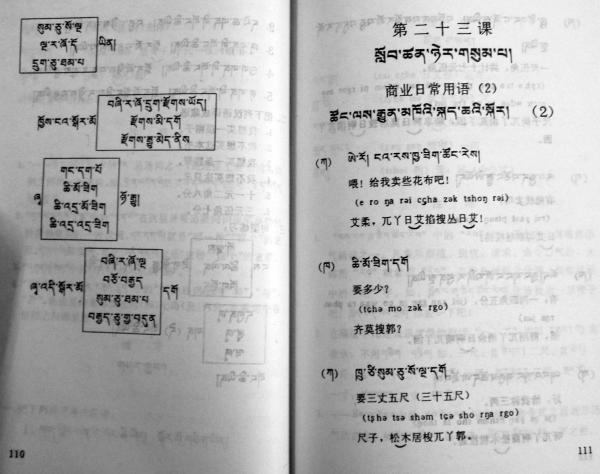 སུམ་ཅུ་སོ་ལྔ
ལྔ་ར་ཞོ་དོ ཡིན།
དྲུག་ཅུ་ཐམ་པ
བཞི་ར་ཞོ་དྲུག་རྫོགས་ཡོད།
ཁྱོས་ངའ་སྒོར་མོ རྫོགས་མི་དགོ
རྫོགས་རྒྱུ་མེད་ནིས
གང་དག་པོ
ཞྭ ཆི་མོ་ཟིག ཉོ་རྒྱུ།
ཆི་འདྲ་འདྲ་ཟིག
བཞི་ར་ཞོ་ལྔ
བཅོ་བརྒྱད
ཞྭ་འདི་སྒོར་མོ སུམ་ཅུ་ཐམ་པ དགོ
བརྒྱད་ཅུ་གྱ་བདུན
110
第二十三课
སློབ་ཚན་ཉེར་གསུམ་པ།
商业日常用语（2）
ཚོང་ལས་རྒྱུན་མཁོའི་སྐད་ཆའི་སྐོར། （2）
(ཀ) ཨེ་རོ། ངའ་རས་ཁྲ་ཟིག་ཚོང་རེས།
喂！给我卖些花布吧！
(e ro ŋa rəi cʂha zək tshoŋ rəi)
艾柔，兀丫日艾掐搜丛日艾！
(ཁ) ཆི་མོ་ཟིག་དགོ
要多少？
(tɕhə mo zək rgo)
齐莫搜郭？
(ཀ) ཁྲུ་ཙི་སུམ་ཅུ་སོ་ལྔ་དགོ
要三丈五尺（三十五尺）
(tʂhə tsə shəm tɕə sho rŋa rgo)
尺子，松木居梭兀丫郭。
111